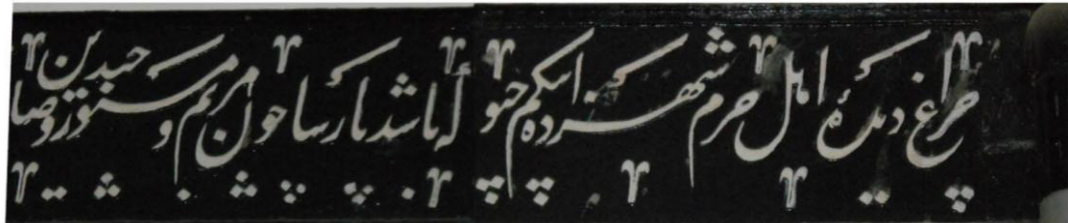 چراغ دیدهٔ اهل حرم شهزاده بیکم چو که باشد پارسا چون مریم و مستور و صاحبدین